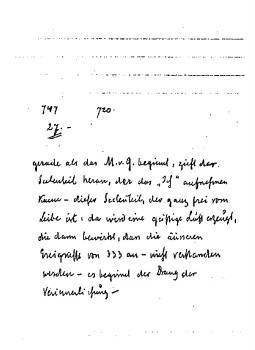 747 720.
27.-
gerade als das M.v.G. beginnt, zieht der
Seelenteil heran, der das "Ich" aufnehmen
kann - dieser Seelenteil, der ganz frei vom
Leibe ist: da wird eine geistige Luft erzeugt,
die dann bewirkt, dass die äusseren
Ereignisse von 333 an - nicht verstanden
werden - es beginnt der Drang der
Verinnerlichung -